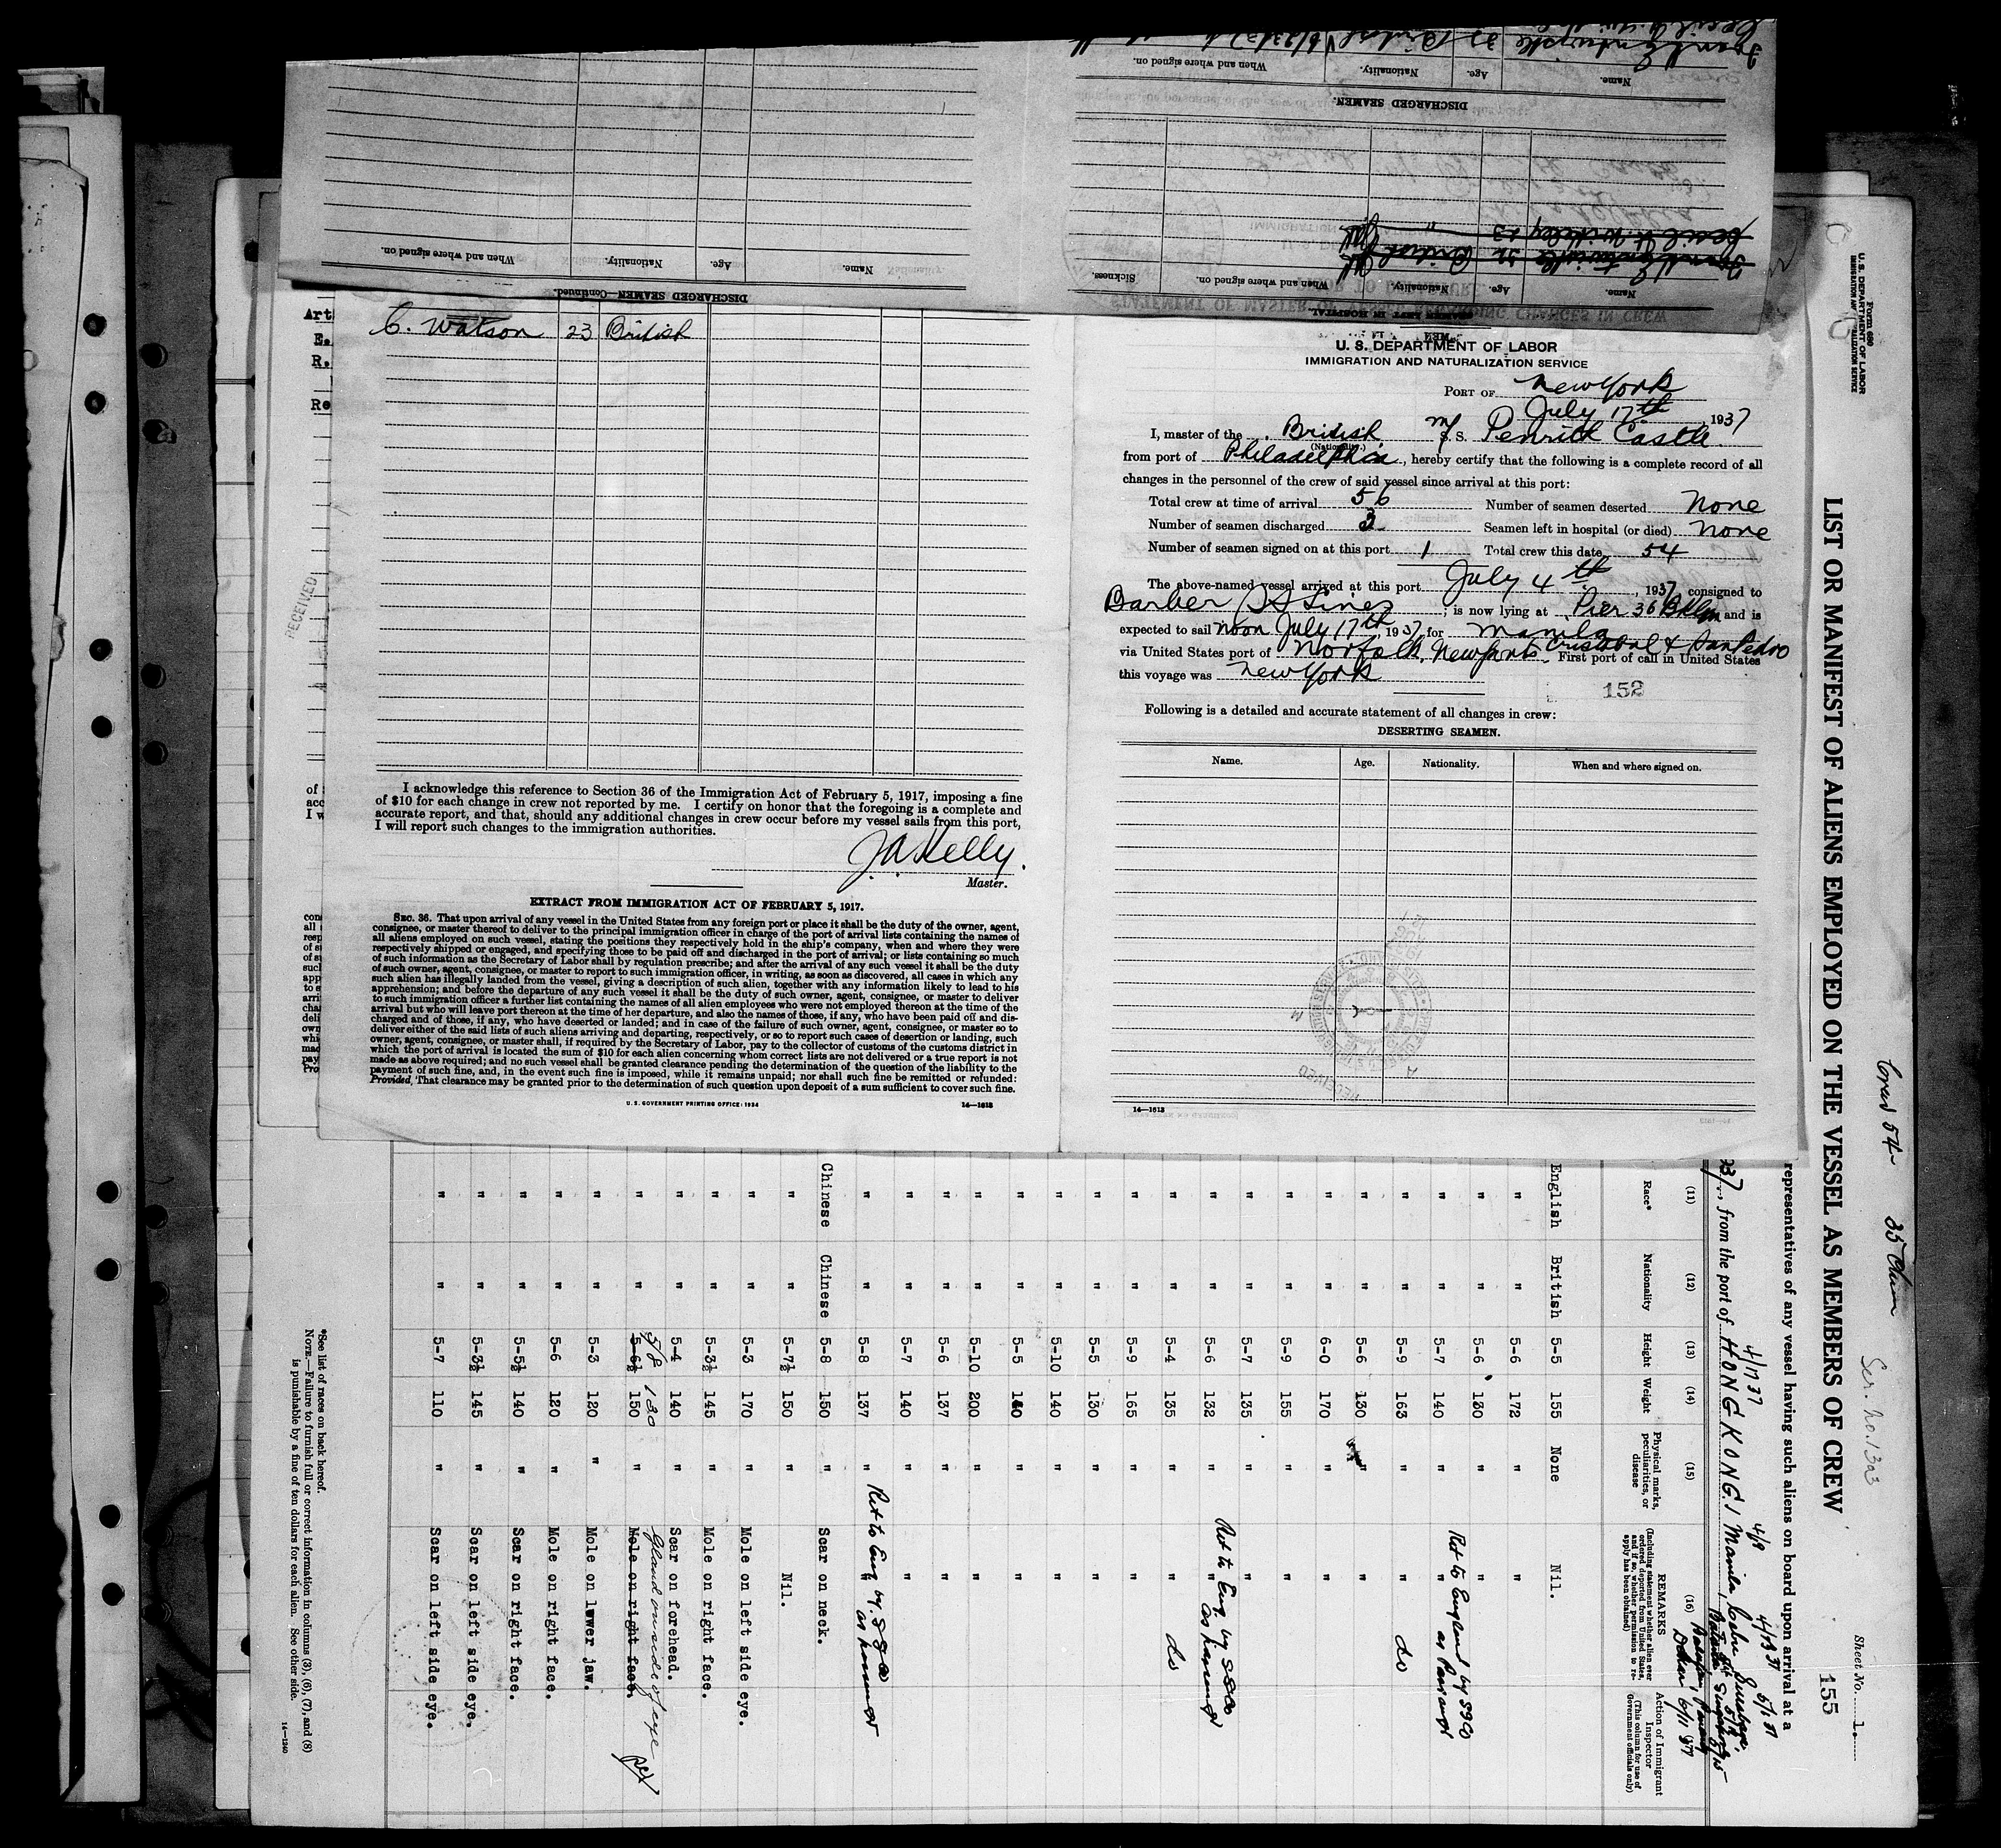 Name. Age. Nationality. When and where signed on.
DISCHARGED SEAMEN.
Name. Age. Nationality. When and where signed on.
Name. Age. Nationality. When and where signed on. Sickness.
SEAMEN LEFT IN HOSPITAL.
STATEMENT OF MASTER OF VESSEL REGARDING CHANGES IN CREW
DISCHARGED SEAMEN—Continued.
Art
E.
R.
Re
C. Watson 23 British
RECEIVED
I acknowledge this reference to Section 36 of the Immigration Act of February 5, 1917, imposing a fine
of $10 for each change in crew not reported by me. I certify on honor that the foregoing is a complete and
accurate report, and that, should any additional changes in crew occur before my vessel sails from this port,
I will report such changes to the immigration authorities.
J A Kelly.
Master.
EXTRACT FROM IMMIGRATION ACT OF FEBRUARY 5, 1917.
SEC. 36. That upon arrival of any vessel in the United States from any foreign port or place it shall be the duty of the owner, agent,
consignee, or master thereof to deliver to the principal immigration officer in charge of the port of arrival lists containing the names of
all aliens employed on such vessel, stating the positions they respectively hold in the ship's company, when and where they were
respectively shipped or engaged, and specifying those to be paid off and discharged in the port of arrival; or lists containing so much
of such information as the Secretary of Labor shall by regulation prescribe; and after the arrival of any such vessel it shall be the duty
of such owner, agent, consignee, or master to report to such immigration officer, in writing, as soon as discovered, all cases in which any
such alien has illegally landed from the vessel, giving a description of such alien, together with any information likely to lead to his
apprehension; and before the departure of any such vessel it shall be the duty of such owner, agent, consignee, or master to deliver
to such immigration officer a further list containing the names of all alien employees who were not employed thereon at the time of the
arrival but who will leave port thereon at the time of her departure, and also the names of those, if any, who have been paid off and dis-
charged and of those, if any, who have deserted or landed; and in case of the failure of such owner, agent, consignee, or master so to
deliver either of the said lists of such aliens arriving and departing, respectively, or so to report such cases of desertion or landing, such
owner, agent, consignee, or master shall, if required by the Secretary of Labor, pay to the collector of customs of the customs district in
which the port of arrival is located the sum of $10 for each alien concerning whom correct lists are not delivered or a true report is not
made as above required; and no such vessel shall be granted clearance pending the determination of the question of the liability to the
payment of such fine, and, in the event such fine is imposed, while it remains unpaid; nor shall such fine be remitted or refunded:
Provided, That clearance may be granted prior to the determination of such question upon deposit of a sum sufficient to cover such fine.
U. S. GOVERNMENT PRINTING OFFICE: 1934 14—1613
U. S. DEPARTMENT OF LABOR
IMMIGRATION AND NATURALIZATION SERVICE
PORT OF New York
July 17th, 1937
I, master of the British M/S. S. Penrith Castle
(Nationality.)
from port of Philadelphia, hereby certify that the following is a complete record of all
changes in the personnel of the crew of said vessel since arrival at this port:
Total crew at time of arrival 56 Number of seamen deserted None
Number of seamen discharged 3 Seamen left in hospital (or died) None
Number of seamen signed on at this port 1 Total crew this date 54
The above-named vessel arrived at this port July 4th, 1937 consigned to
Barber SS Lines; is now lying at Pier 36 Bklyn and is
expected to sail noon July 17th, 1937, for Manila
via United States port of Norfolk, Newport N. Cristobal & San Pedro First port of call in United States
this voyage was New York
152
Following is a detailed and accurate statement of all changes in crew:
DESERTING SEAMEN.
Name. Age. Nationality. When and where signed on.
14—1613
Form 680
U. S. DEPARTMENT OF LABOR
IMMIGRATION AND NATURALIZATION SERVICE
Crew 54
35 Chin
Ser. No. 1303
Sheet No. 1.
155
LIST OR MANIFEST OF ALIENS EMPLOYED ON THE VESSEL AS MEMBERS OF CREW
representatives of any vessel having such aliens on board upon arrival at a
4/17 37 4/9 4/13 37 5/1 37
from the port of HONG KONG
(11) (12) (13) (14) (15) (16)
Race* Nationality Height Weight Physical marks, peculiarities, or disease REMARKS (Including statement whether alien ever ordered deported from United States, and if so, whether permission to reapply has been obtained) Action of Immigrant Inspector (This column for use of Government officials only)
English British 5-5 155 None Nil.
" " 5-6 172 " "
" " 5-6 130 " "
" " 5-7 140 " " Ret to England by SS Co as Passenger
" " 5-9 163 " " do
" " 5-6 130 " "
" " 6-0 170 " "
" " 5-9 155 " "
" " 5-7 135 " "
" " 5-6 132 " " Ret to Eng. by SS Co as passenger
" " 5-4 135 " " do
" " 5-9 165 " "
" " 5-5 130 " "
" " 5-10 140 " "
" " 5-5 140 " "
" " 5-10 200 " "
" " 5-6 137 " "
" " 5-7 140 " "
" " 5-8 137 " " Ret to Eng. by SS Co as passenger
Chinese Chinese 5-8 150 " Scar on neck.
" " 5-7½ 150 " Nil.
" " 5-3 170 " Mole on left side eye.
" " 5-3½ 145 " Mole on right face.
" " 5-4 140 " Scar on forehead.
5/8 130 Gland on side of eye
" " 5-6½ 150 " Mole on right face.
" " 5-3 120 " Mole on lower jaw.
" " 5-6 120 " Mole on right face.
" " 5-5½ 140 " Scar on right face.
" " 5-3½ 145 " Scar on left side eye.
" " 5-7 110 " Scar on left side eye.
*See list of races on back hereof.
NOTE.—Failure to furnish full or correct information in columns (3), (6), (7), and (8)
is punishable by a fine of ten dollars for each alien. See other side.
14—1240